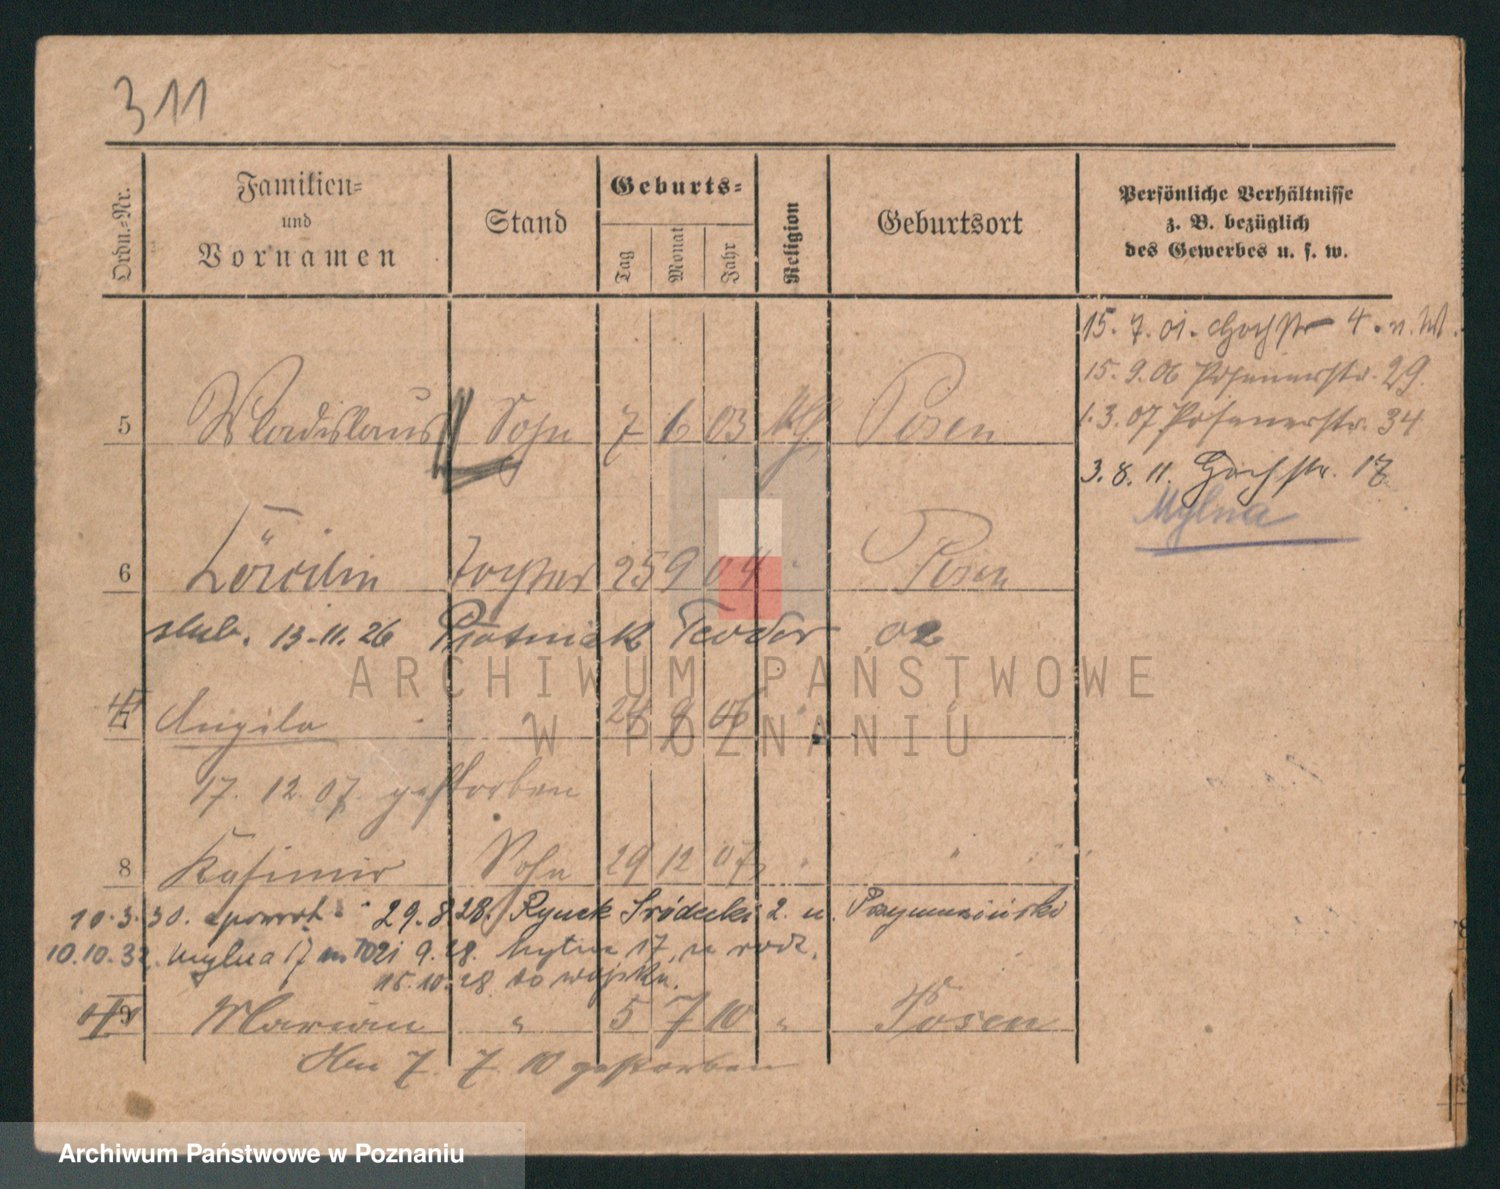 311
Ordn.-Nr.
Familien-
und
Vornamen
Stand
Geburts-
Tag
Monat
Jahr
Religion
Geburtsort
Persönliche Verhältnisse
z. B. bezüglich
des Gewerbes u. s. w.
15. 7. 01. Hochstr 4. n. W.
15. 9. 06 Posenerstr. 29.
1. 3. 07 Posenerstr. 34
3. 8. 11. Hochstr. 17
Mylna
5 Wladislaus Sohn 7 6 03 Posen
6 Tochter 25 9 04 Posen
ślub. 13.11.26 Teodor 02
Angela 9 06
17. 12. 07. gestorben
8 Kasimir Sohn 29 12 07 "
10.3.30. spowrot 29.8.28. Rynek Śródecki 2. u.
10.10.32. Mylna 17 9.28. Mylna 17, u rodz.
15.10.28 do wojska.
9 Marian " 5 7 10 " Posen
Am 7. 7. 10 gestorben
ARCHIWUM PAŃSTWOWE
W POZNANIU
Archiwum Państwowe w Poznaniu